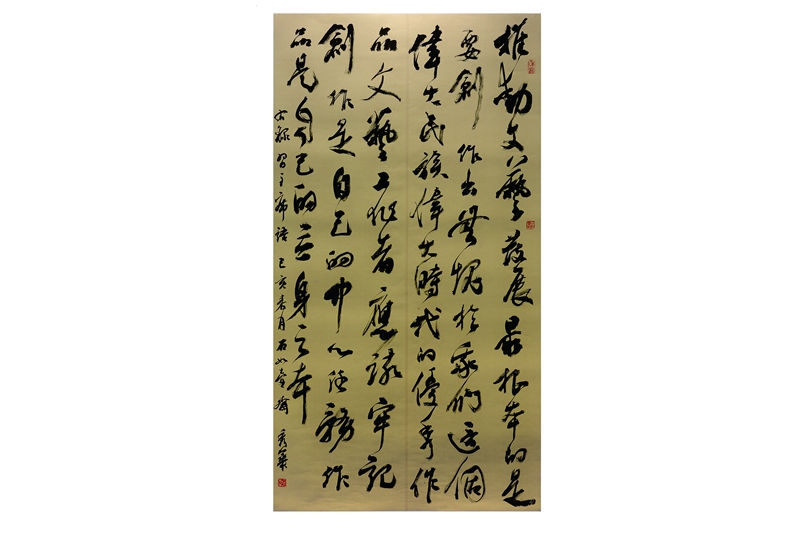 推動文藝發展最根本的是
要創作出無愧於我們這個
偉大民族偉大時代的優秀作
品文藝工作者應該牢記
創作是自己的中心任務作
品是自己的立身之本
錄習主席語己亥